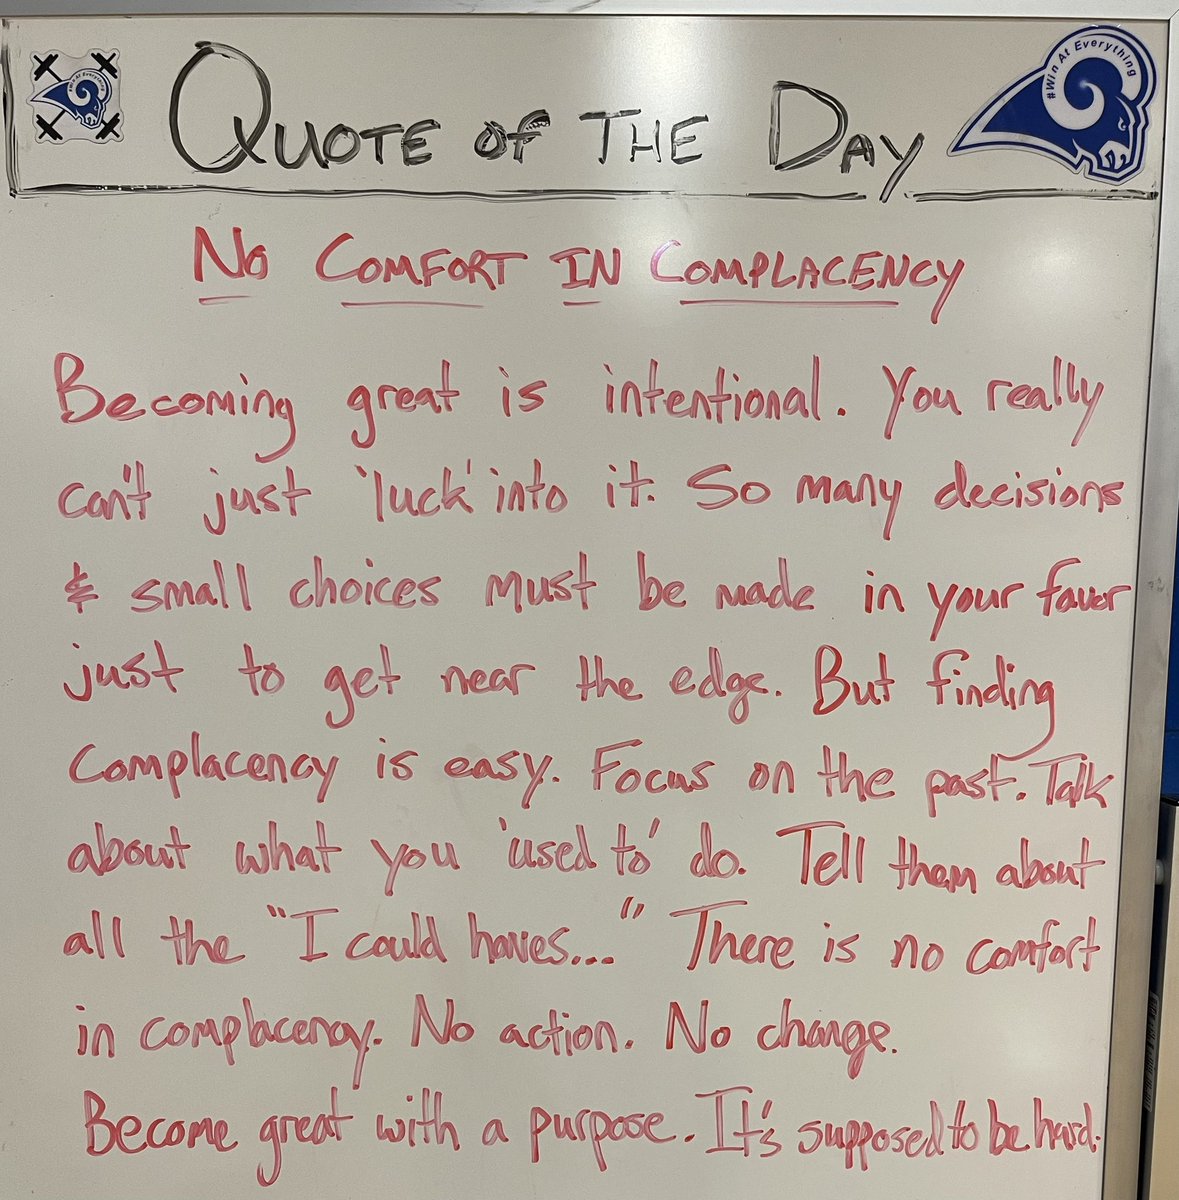 #Win At Everything
QUOTE OF THE DAY
#Win At Everything
NO COMFORT IN COMPLACENCY
Becoming great is intentional. You really
can't just 'luck' into it. So many decisions
& small choices must be made in your favor
just to get near the edge. But finding
Complacency is easy. Focus on the past. Talk
about what you 'used to' do. Tell them about
all the "I could haves..." There is no comfort
in complacency. No action. No change.
Become great with a purpose. It's supposed to be hard.